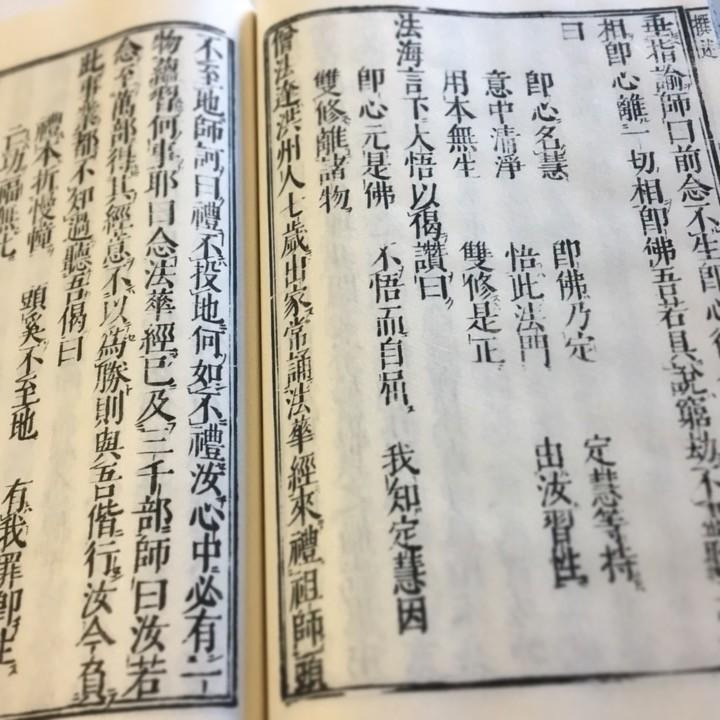 撰述
垂指諭師曰前念不生即心後
相即心離一切相即佛吾若具說窮劫不
曰
即心名慧　即佛乃定　定慧等持
意中清淨　悟此法門　由汝習性
用本無生　雙修是正
法海言下大悟以偈讚曰
即心元是佛　不悟而自屈　我知定慧因
雙修離諸物
僧法達洪州人七歲出家常誦法華經來禮祖師頭
不至地師訶曰禮不投地何如不禮汝心中必有一
物蘊習何事耶曰念法華經已及三千部師曰汝若
念至萬部得其經意不以為勝則與吾偕行汝今負
此事業都不知過聽吾偈曰
禮本折慢幢　頭奚不至地　有我罪即生
亡功福無比